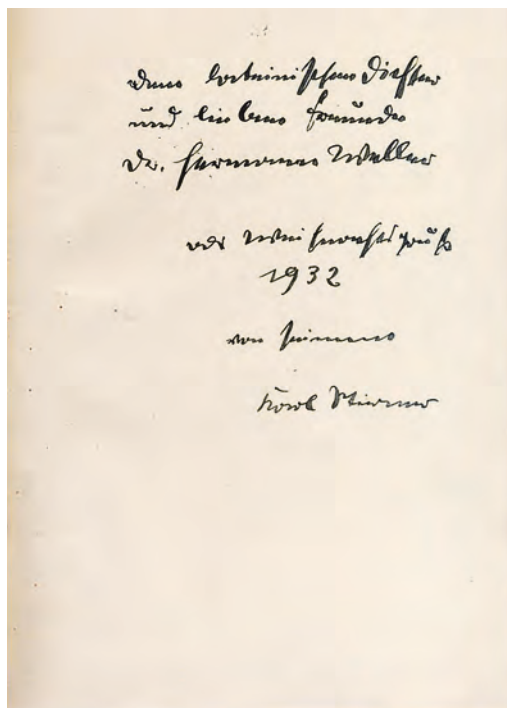 dem lateinischen Dichter
und lieben Freunde
Dr. Hermann Weller
als Weihnachtsgruß
1932
von seinem
Karl Stirner